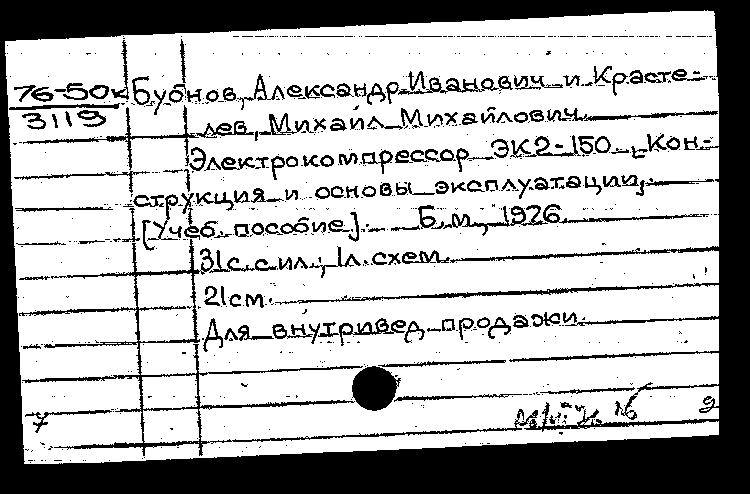 76-50к Бубнов, Александр Иванович и Красте-
3119
лев, Михаил Михайлович.
Электрокомпрессор ЭК2-150. [Кон-
струкция и основы эксплуатации].
[Учеб. пособие]. Б.м., 1926.
31с. с ил.; 1л. схем.
21см.
Для внутривед. продажи.
7
16
9